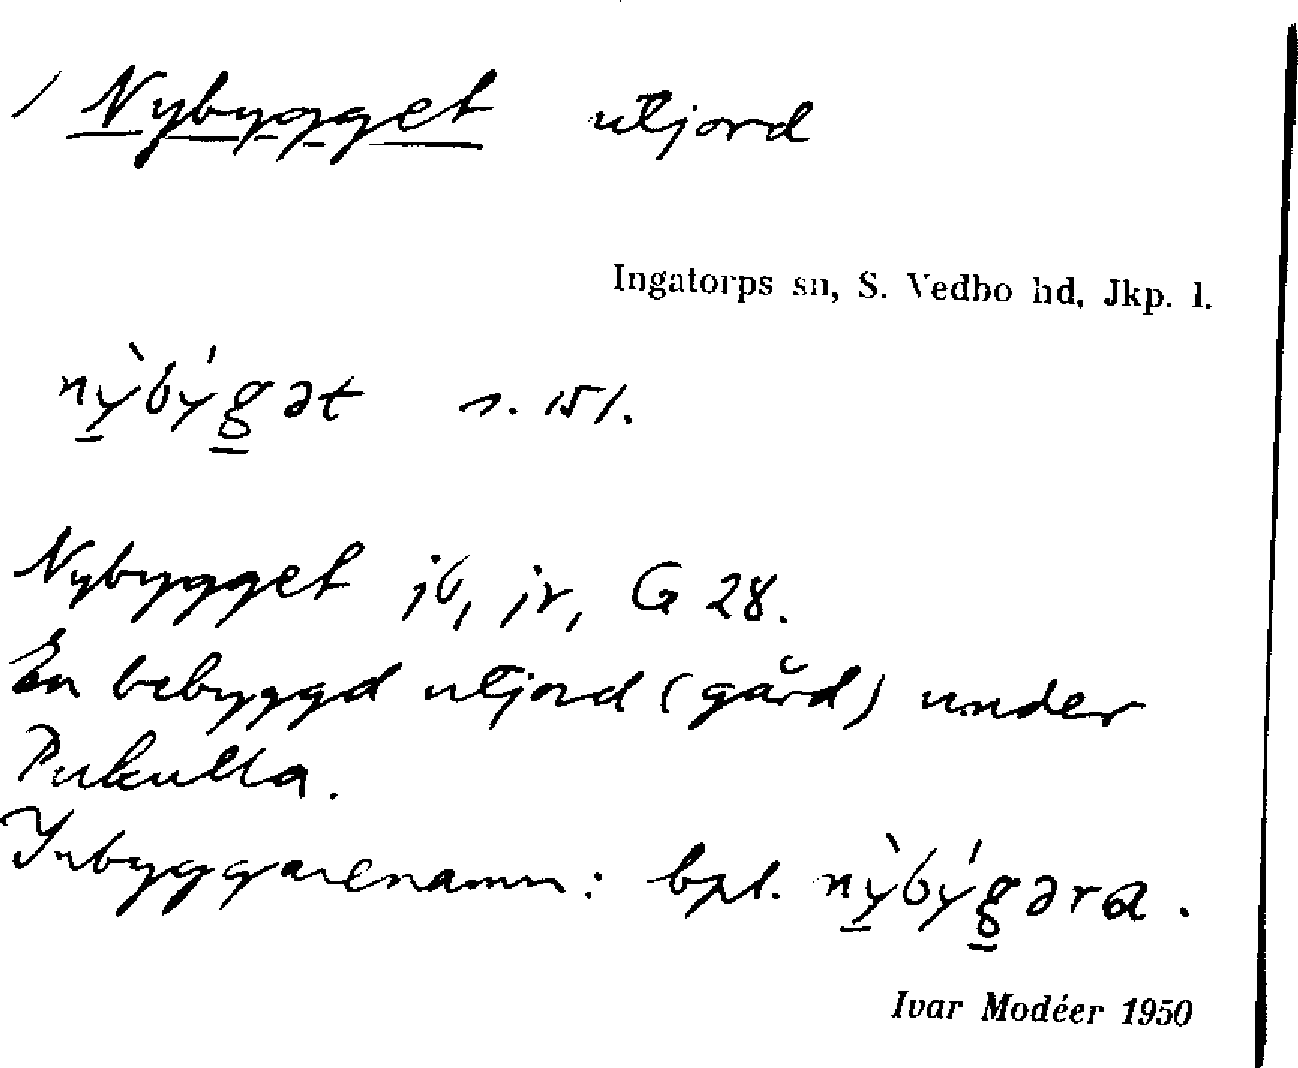 / Nybygget utjord
Ingatorps sn, S. Vedbo hd, Jkp. l.
nỳ̱býg̱ət s. 151.
Nybygget jb, jr, G 28.
En bebyggd utjord (gård) under
Pukulla.
Inbyggarenamn: bpl. nỳ̱býg̱əra.
Ivar Modéer 1950